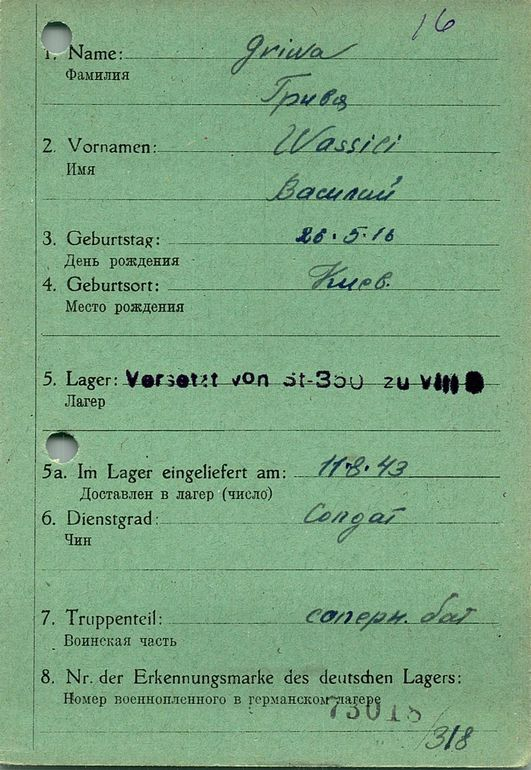 16
1. Name: Griwa
Фамилия
Грива
2. Vornamen: Wassili
Имя
Василий
3. Geburtstag: 26.5.16
День рождения
4. Geburtsort: Киев.
Место рождения
5. Lager: Versetzt von St-350 zu VIII
Лагер
5a. Im Lager eingeliefert am: 11.8.43
Доставлен в лагер (число)
6. Dienstgrad: Солдат
Чин
7. Truppenteil: саперн. бат
Воинская часть
8. Nr. der Erkennungsmarke des deutschen Lagers:
Номер военнопленного в германском лагере
73018
/318